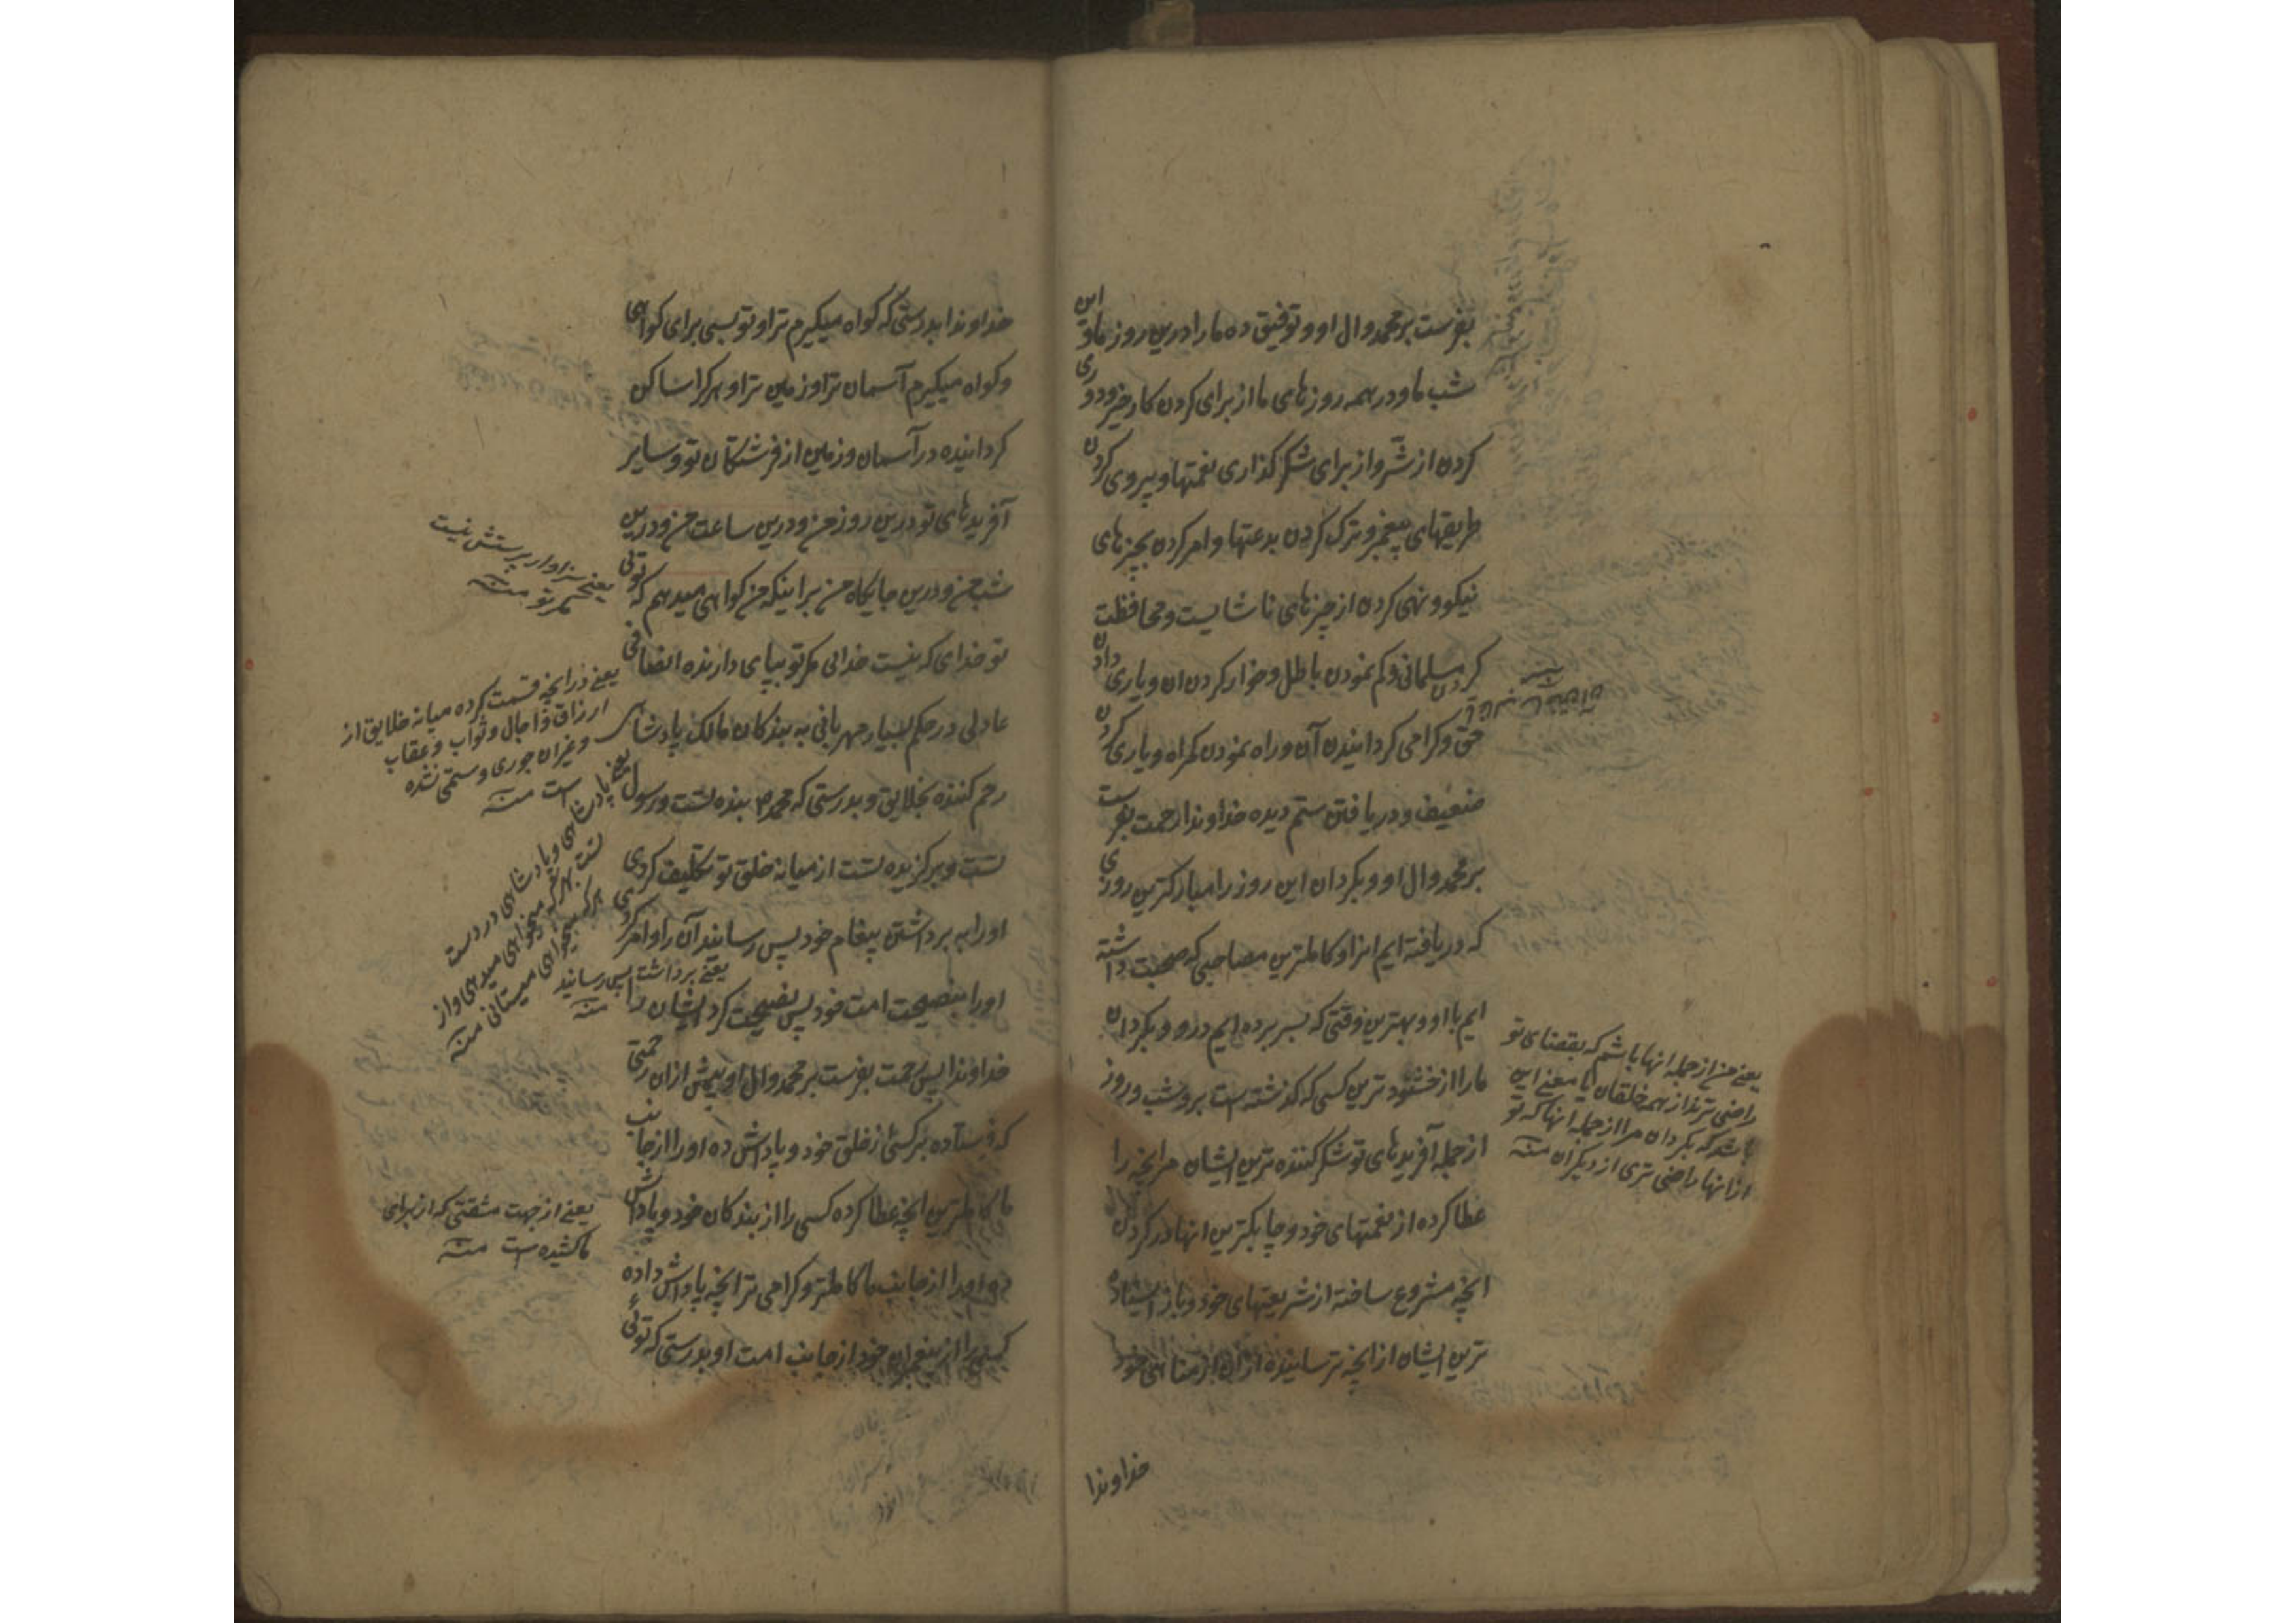 بفرست بر محمد وال او و توفیق ده ما را درین روز ما و این
شب ما و در همه روزهای ما از برای کردن کار خیر و دوری
کردن از شر و از برای شکر گذاری نعمتها و پیروی کردن
طریقهای پیغمبر و ترک کردن بدعتها و امر کردن بچیزهای
نیکو و نهی کردن از چیزهای ناشایست و محافظت
کردن مسلمانی و کم نمودن باطل و خوار کردن ان و یاری دادن
حق و کرامی کردانیدن آن و راه نمودن کمراه و یاری کردن
ضعیف و دریافتن ستم دیده خداوندا رحمت بفرست
بر محمد وال او و بکردان این روز را مبارکترین روزی
که دریافته ایم انرا و کاملترین مصاحبی که صحبت داشته
ایم با او و بهترین وقتی که بسر برده ایم درو و بکردان
ما را از خشنود ترین کسی که کذشته است برو شب و روز
از جمله آفریدهای تو شکر کننده ترین ایشان مر انچه را
عطا کرده از نعمتهای خود و چابکترین انها در کردن
انچه مشروع ساخته از شریعتهای خود و باز ایستاده
ترین ایشان از انچه ترسانیده از ان از مناهی خود
یعنی من از جمله انها باشم که بقضای تو
راضی ترند از همه خلقان یا معنی این
باشد که بکردان مرا از جمله انها که تو
از انها راضی تری از دیکران منه
خداوندا
خداوندا بدرستی که کواه میکیرم ترا و تو بسی برای کواهی
و کواه میکیرم آسمان ترا و زمین ترا و هر کرا ساکن
کردانیده در آسمان و زمین از فرشتکان تو و سایر
آفریدهای تو درین روز من و درین ساعت من و درین
شب من و درین جایکاه من بر اینکه من کواهی میدهم که توئی
تو خدای که نیست خدائی مکر تو بپای دارنده انصافی
عادلی در حکم بسیار مهربانی به بندکان مالک پادشاهی
رحم کننده بخلایق و بدرستی که محمد بنده تست و رسول
تست و برکزیده تست از میانه خلق تو تکلیف کردی
اورا به برداشتن پیغام خود پس رسانید آن را و امر کردی
اورا بنصیحت امت خود پس نصیحت کرد ایشان را
خداوندا پس رحمت بفرست بر محمد وال او بیش از ان رحمتی
که فرستاده بر کسی از خلق خود و پاداش ده اورا از جانب
ما کاملترین انچه عطا کرده کسی را از بندکان خود و پاداش
ده اورا از جانب ما کاملتر و کرامی تر انچه پاداش داده
کسی را از پیغمبران خود از جانب امت او بدرستی که توئی
یعنی سزاوار پرستش نیست
مکر تو منه
یعنی در انچه قسمت کرده میانه خلایق از
ارزاق و اجال و ثواب و عقاب
و غیر ان جوری و ستمی نشده
است منه
پادشاهی و پادشاهی در دست
تست بهر که میخواهی میدهی و از
هر که میخواهی میستانی منه
یعنی برداشت پس رسانید
منه
یعنی از جهت مشقتی که از برای
ما کشیده است منه